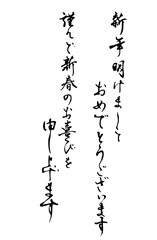 新年明けまして
おめでとうございます
謹んで新春のお喜びを
申し上げます